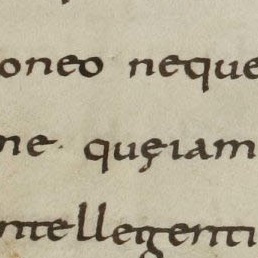 oneo neque
ne· quęiam
ntellegenti